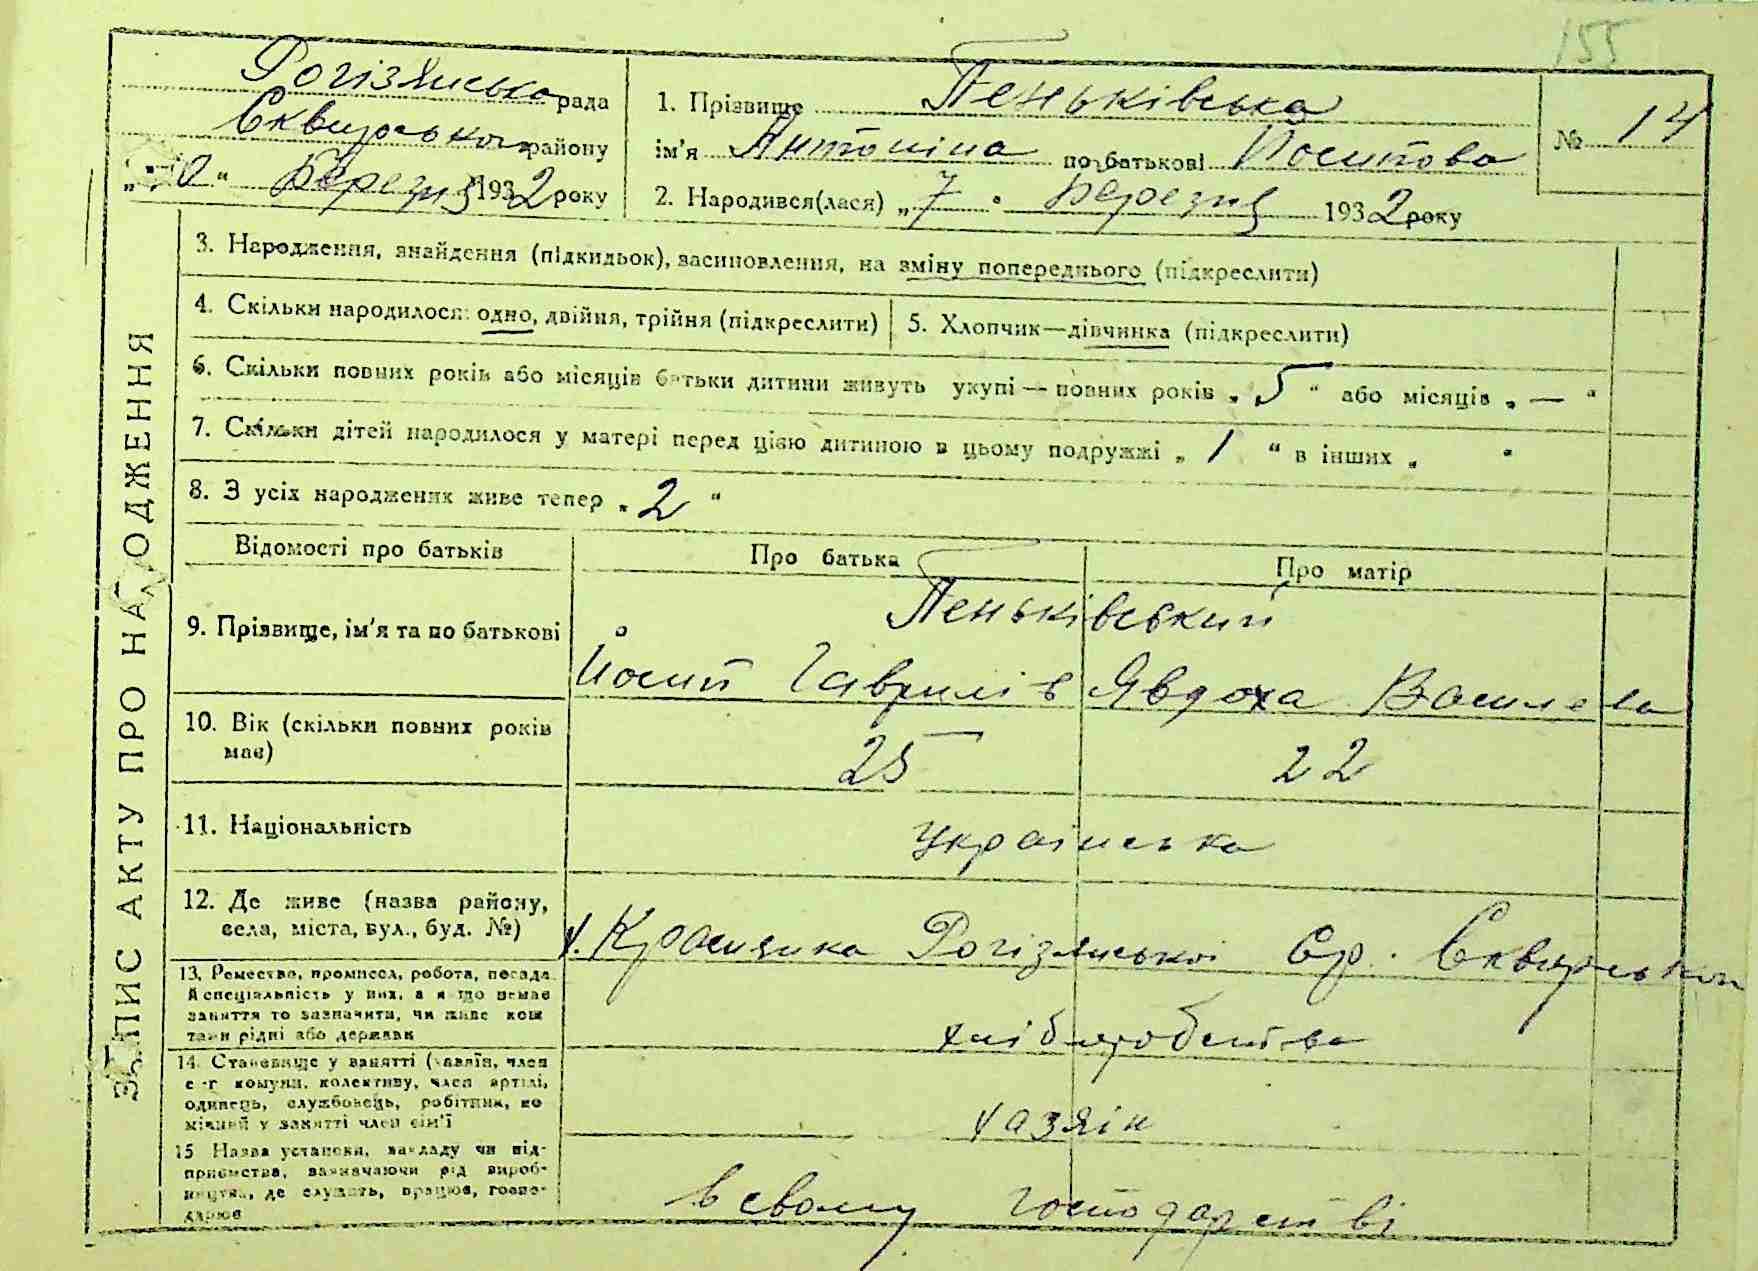 155
Рогізянська рада
Сквирського району
"10" Березня 1932 року
1. Прізвище Пеньківська
ім'я Антоніна по батькові Йосипова
2. Народився(лася) "7" Березня 1932 року
№ 14
ЗАПИС АКТУ ПРО НАРОДЖЕННЯ
3. Народження, знайдення (підкидьок), засиновлення, на зміну попереднього (підкреслити)
4. Скільки народилося: одно, двійня, трійня (підкреслити)
5. Хлопчик—дівчинка (підкреслити)
6. Скільки повних років або місяців батьки дитини живуть укупі — повних років "5" або місяців "—"
7. Скільки дітей народилося у матері перед цією дитиною в цьому подружжі "1" в інших " "
8. З усіх народжених живе тепер "2"
Відомості про батьків
Про батька
Про матір
9. Прізвище, ім'я та по батькові
Пеньківський
Йосип Гаврилів
Явдоха Василева
10. Вік (скільки повних років
має)
25
22
11. Національність
українська
12. Де живе (назва району,
села, міста, вул., буд. №)
х. Красянка Рогізянської с.р. Сквирської
13. Ремество, промисел, робота, посада
й спеціальність у них, а якщо немає
заняття то зазначити, чи живе кош
тами рідні або держави
хліборобство
14. Становище у занятті (хазяїн, член
с-г комуни, колективу, член артілі,
одинець, службовець, робітник, по
мічний у занятті член сім'ї
хазяїн
15 Назва установи, закладу чи під-
приємства, зазначаючи рід вироб-
ництва, де служить, працює, госпо-
дарює
в свому господарстві